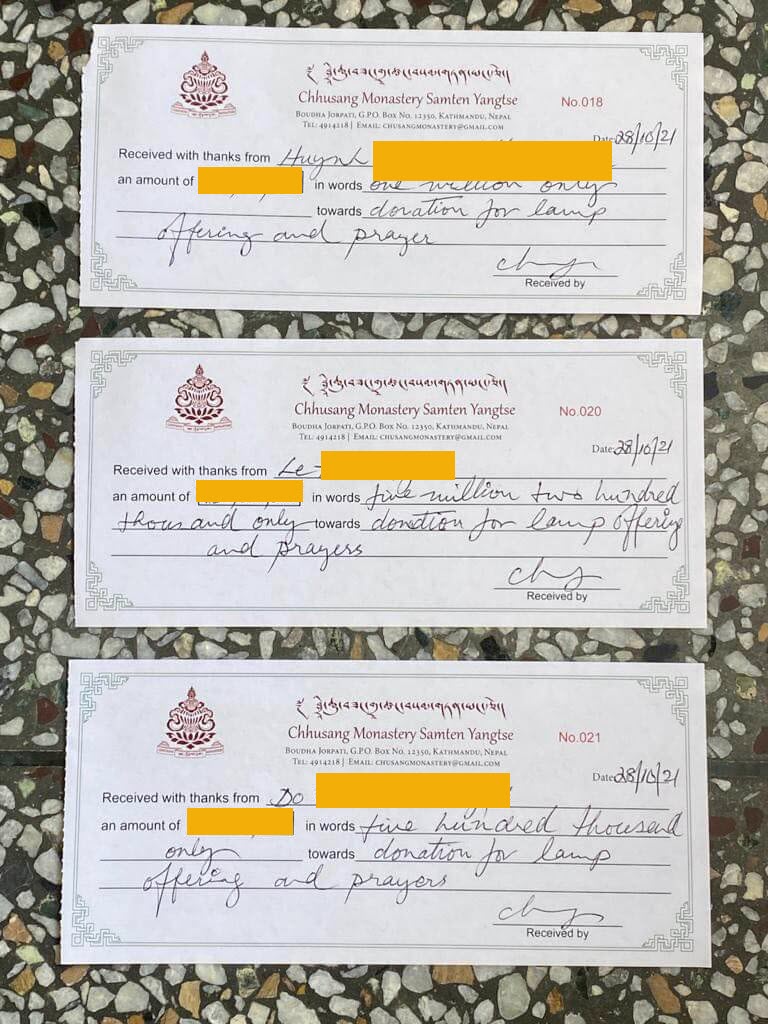 Chhusang Monastery Samten Yangtse
No.018
Boudha Jorpati, G.P.O. Box No. 12350, Kathmandu, Nepal
Tel: 4914218 | Email: chusangmonastery@gmail.com
Date: 28/10/21
Received with thanks from Huynh
an amount of in words one million only
towards donation for lamp
offering and prayer
Received by
Chhusang Monastery Samten Yangtse
No.020
Boudha Jorpati, G.P.O. Box No. 12350, Kathmandu, Nepal
Tel: 4914218 | Email: chusangmonastery@gmail.com
Date: 28/10/21
Received with thanks from Le
an amount of in words five million two hundred
thousand only towards donation for lamp offering
and prayers
Received by
Chhusang Monastery Samten Yangtse
No.021
Boudha Jorpati, G.P.O. Box No. 12350, Kathmandu, Nepal
Tel: 4914218 | Email: chusangmonastery@gmail.com
Date: 28/10/21
Received with thanks from Do
an amount of in words five hundred thousand
only towards donation for lamp
offering and prayers
Received by